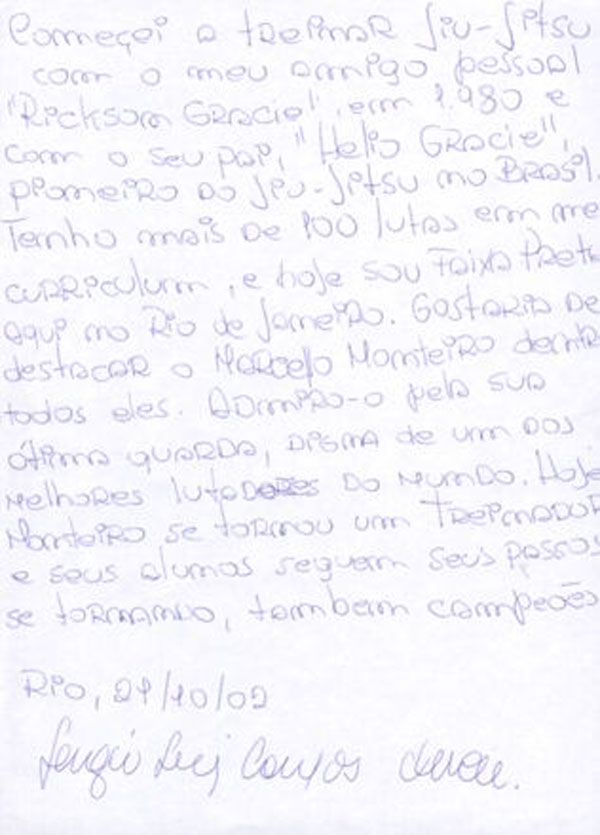 Começei a treinar Jiu-Jitsu
com o meu amigo pessoal
"Rickson Gracie", em 1.980 e
com o seu pai, "Helio Gracie",
pioneiro do Jiu-Jitsu no Brasil.
Tenho mais de 100 lutas em me
curriculum, e hoje sou Faixa Pret
aqui no Rio de Janeiro. Gostaria de
destacar o Marcelo Monteiro dentr
todos eles. Admiro-o pela sua
ótima guarda, digna de um dos
melhores lutadores do mundo. Hoje
Monteiro se tornou um Treinador
e seus alunos seguem seus passos
se tornando, tambem campeões
Rio, 29/10/02
Sergio Luiz Campos